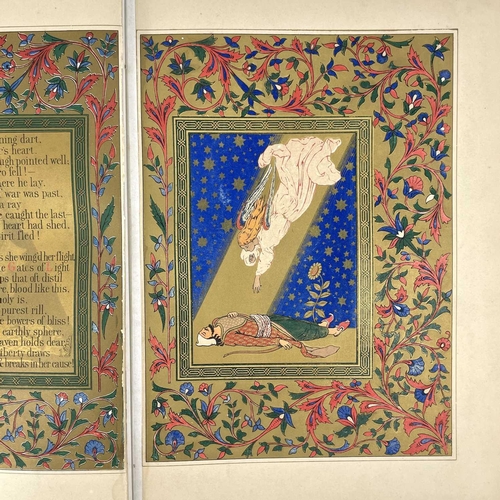 ning dart.
r's heart.
ugh pointed well;
ro fell!—
here he lay.
war was past.
a ray
caught the last—
heart had shed.
irit fled!
as she wing'd her flight
e Gates of Light
ps that oft distil
re, blood like this,
holy is.
purest rill
he bowers of bliss!
earthly sphere,
eaven holds dear,
iberty draws
breaks in her cause!